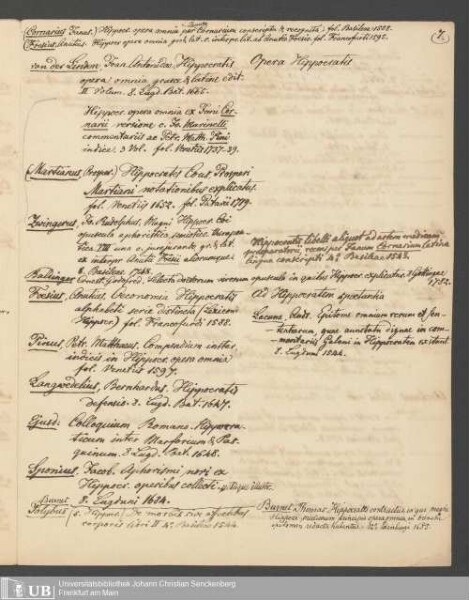 7.
(Cornarius Janus.) Hippocr. opera omnia per Cornarium conscripta & recognita. fol. Basileae
(Foesius, Anutius. Hippocr. opera omnia gr. & lat. fol. Francofurti 1595.
von der Linden, Joan. Antonides. Hippocratis
opera omnia graece & latine edit.
II Volum. 8. Lugd. Bat. 1665.
Opera Hippocratis
Hippocr. opera omnia ex Jani Cor-
narii versione c. Jo. Marinelli
commentariis ac Petr. Matth. Pini
indice. 3 Vol. fol. Venetiis 1737-39.
(Martianus, Prosper.) Hippocrates Cous Prosperi
Martiani notationibus explicatus
fol. Venetiis 1652. fol. Patavii 1719.
Zwingerus, Jo. Rudolphus, Magni Hippocr. Coi
opuscula aphoristica semiotico therapeu-
tica VIII una c. jurejurando, gr. & lat.
ex interpr. Anutii Foesii aliorumque.
8. Basileae 1748.
Hippocratis libelli aliquot ad artem medicam
praeparatorii, recens per Janum Cornarium latina
lingua conscripti 8. Basileae 1543.
Baldinger, Ernest. Godofred. Selecta doctorum virorum opuscula in quibus Hippocr. explicatur. 8. Gottingae
1782.
Foesius, Anutius. Oeconomia Hippocratis
alphabeti serie distincta (Lexicon
Hippocr.) fol. Francofurdi 1588.
Ad Hippocratem spectantia
Lacuna, Andr. Epitome omnium rerum et sen-
tentiarum, quae annotatu dignae in com-
mentariis Galeni in Hippocratem extant
8. Lugduni 1554.
Pinus Petr. Matthaeus. Compendium instar
indicis in Hippocr. opera omnia
fol. Venetiis 1597.
Langwedelius, Bernhardus. Hippocratis
defensio. 8. Lugd. Bat. 1647.
Ejusd. Colloquium Romano-Hippocra-
ticum inter Marforium & Pas-
quinum. 8. Lugd. Bat. 1648.
Sponius, Jacob. Aphorismi novi ex
Hippocr. operibus collecti
8. Lugduni 1684.
Polybus (s. Hippocr.) De morbis sive affectibus
corporis libri II 4. Basileae 1544.
Burnet, Thomas. Hippocrates contractus in quo magni
Hippocr. medicorum principis opera omnia in brevem
epitomen redacta habentur. 8. Edinburgi 1685.
UB
Universitätsbibliothek Johann Christian Senckenberg
Frankfurt am Main